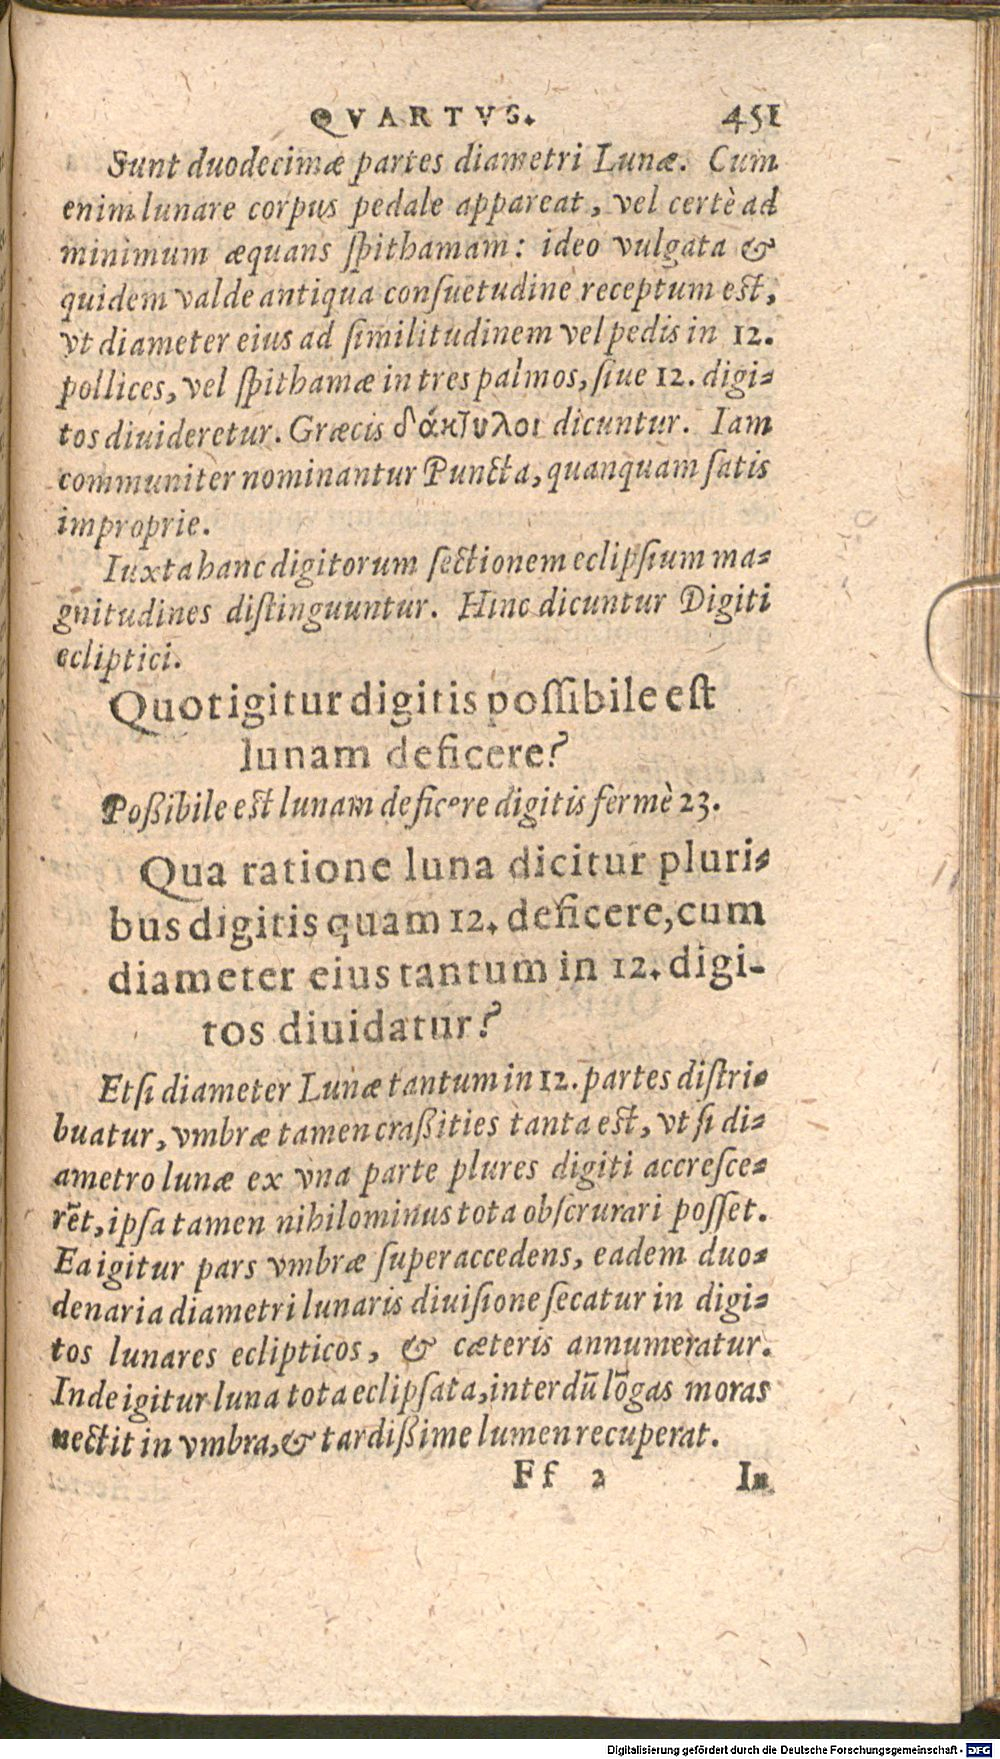 QVARTVS. 451
Sunt duodecimæ partes diametri Lunæ. Cum
enim lunare corpus pedale appareat, vel certè ad
minimum æquans ſpithamam: ideo vulgata &
quidem valde antiqua conſuetudine receptum est,
vt diameter eius ad ſimilitudinem vel pedis in 12.
pollices, vel ſpithamæ in tres palmos, ſiue 12. digi-
tos diuideretur. Græcis δάκτυλοι dicuntur. Iam
communiter nominantur Puncta, quanquam ſatis
improprie.
Iuxta hanc digitorum ſectionem eclipſium ma-
gnitudines diſtinguuntur. Hinc dicuntur Digiti
ecliptici.
Quot igitur digitis poſſibile eſt
lunam deficere?
Poßibile est lunam deficere digitis fermè 23.
Qua ratione luna dicitur pluri-
bus digitis quam 12. deficere, cum
diameter eius tantum in 12. digi-
tos diuidatur?
Etſi diameter Lunæ tantum in 12. partes diſtri-
buatur, vmbræ tamen craßities tanta est, vt ſi di-
ametro lunæ ex vna parte plures digiti accreſce-
rẽt, ipſa tamen nihilominus tota obſcrurari poſſet.
Ea igitur pars vmbræ ſuperaccedens, eadem duo-
denaria diametri lunaris diuiſione ſecatur in digi-
tos lunares eclipticos, & cæteris annumeratur.
Inde igitur luna tota eclipſata, interdũ lõgas moras
nectit in vmbra, & tardißime lumen recuperat.
Ff 2 In
Digitalisierung gefördert durch die Deutsche Forschungsgemeinschaft - DFG